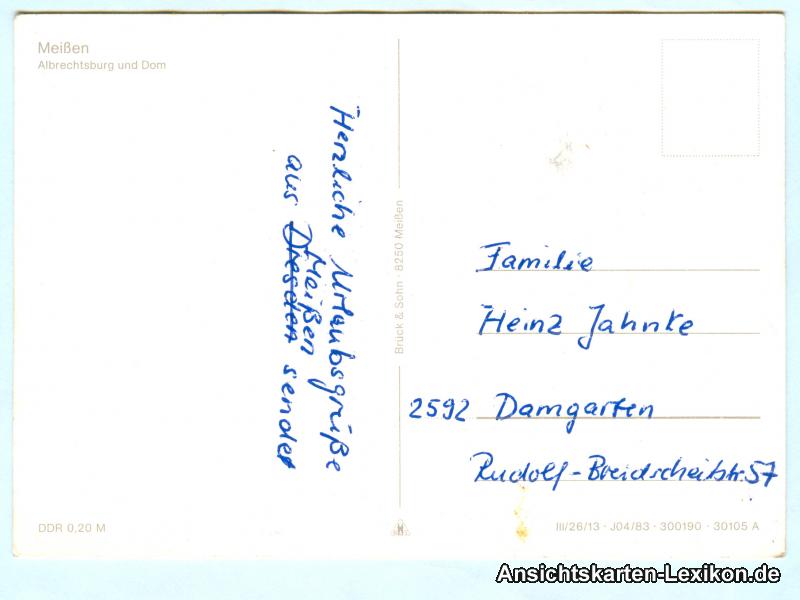 Meißen
Albrechtsburg und Dom
Herzliche Urlaubsgrüße
aus Dresden Meißen sendet
Brück & Sohn · 8250 Meißen
Familie
Heinz Jahnke
2592 Damgarten
Rudolf-Breidscheitstr. 57
DDR 0,20 M
III/26/13 · J04/83 · 300190 · 30105 A
Ansichtskarten-Lexikon.de